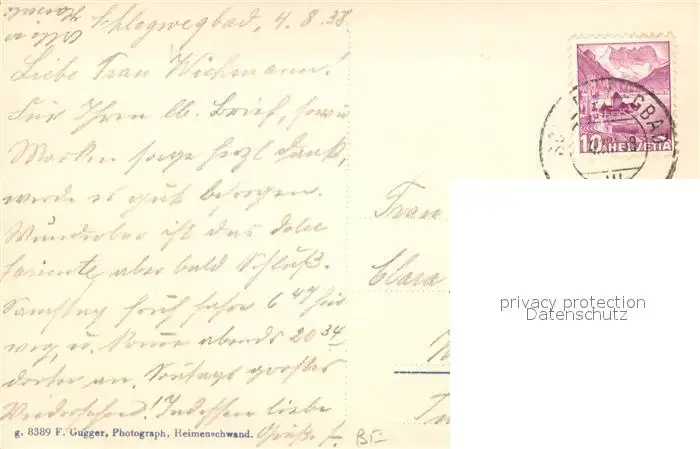 Schlegwegbad, 4.8.38
Liebe Frau Wichmann!
Für Ihren lb. Brief, sowie
Marken sage herzl Dank,
werde es gut besorgen.
Wunderbar ist das dolce
farniente, aber bald Schluß.
Samstag früh fahre 6 47 hier
weg, u. komme abends 20 34
dorten an. Sontags großes
Wiedersehen! Indessen liebe
Grüße
g. 8389 F. Gugger, Photograph, Heimenschwand.
BE
10 HELVETIA
Frau
Clara
privacy protection
Datenschutz